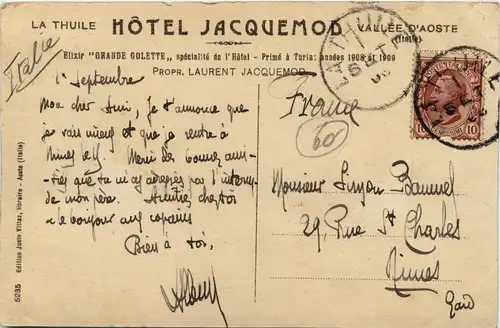 LA THUILE HÔTEL JACQUEMOD VALLÉE D'AOSTE
(Italie)
Elixir "GRANDE GOLETTE", spécialité de l'Hôtel - Primé à Turin: années 1908 et 1909
PROPR. LAURENT JACQUEMOD
Italie
1er Septembre
Mon cher Ami, je t'annonce que
je vais mieux et que je rentre à
Nimes le 4. Merci des bonnes ami-
tiés que tu m'as adressées par l'interm.
de mon père. chez toi
le bonjour aux copains
Bien à toi,
France
60
Monsieur Simon Bauwel
29, Rue St Charles
Nimes
Gard
LA THUILE
10 10
5235 Edition Juste Vittaz, libraire - Aoste (Italie)